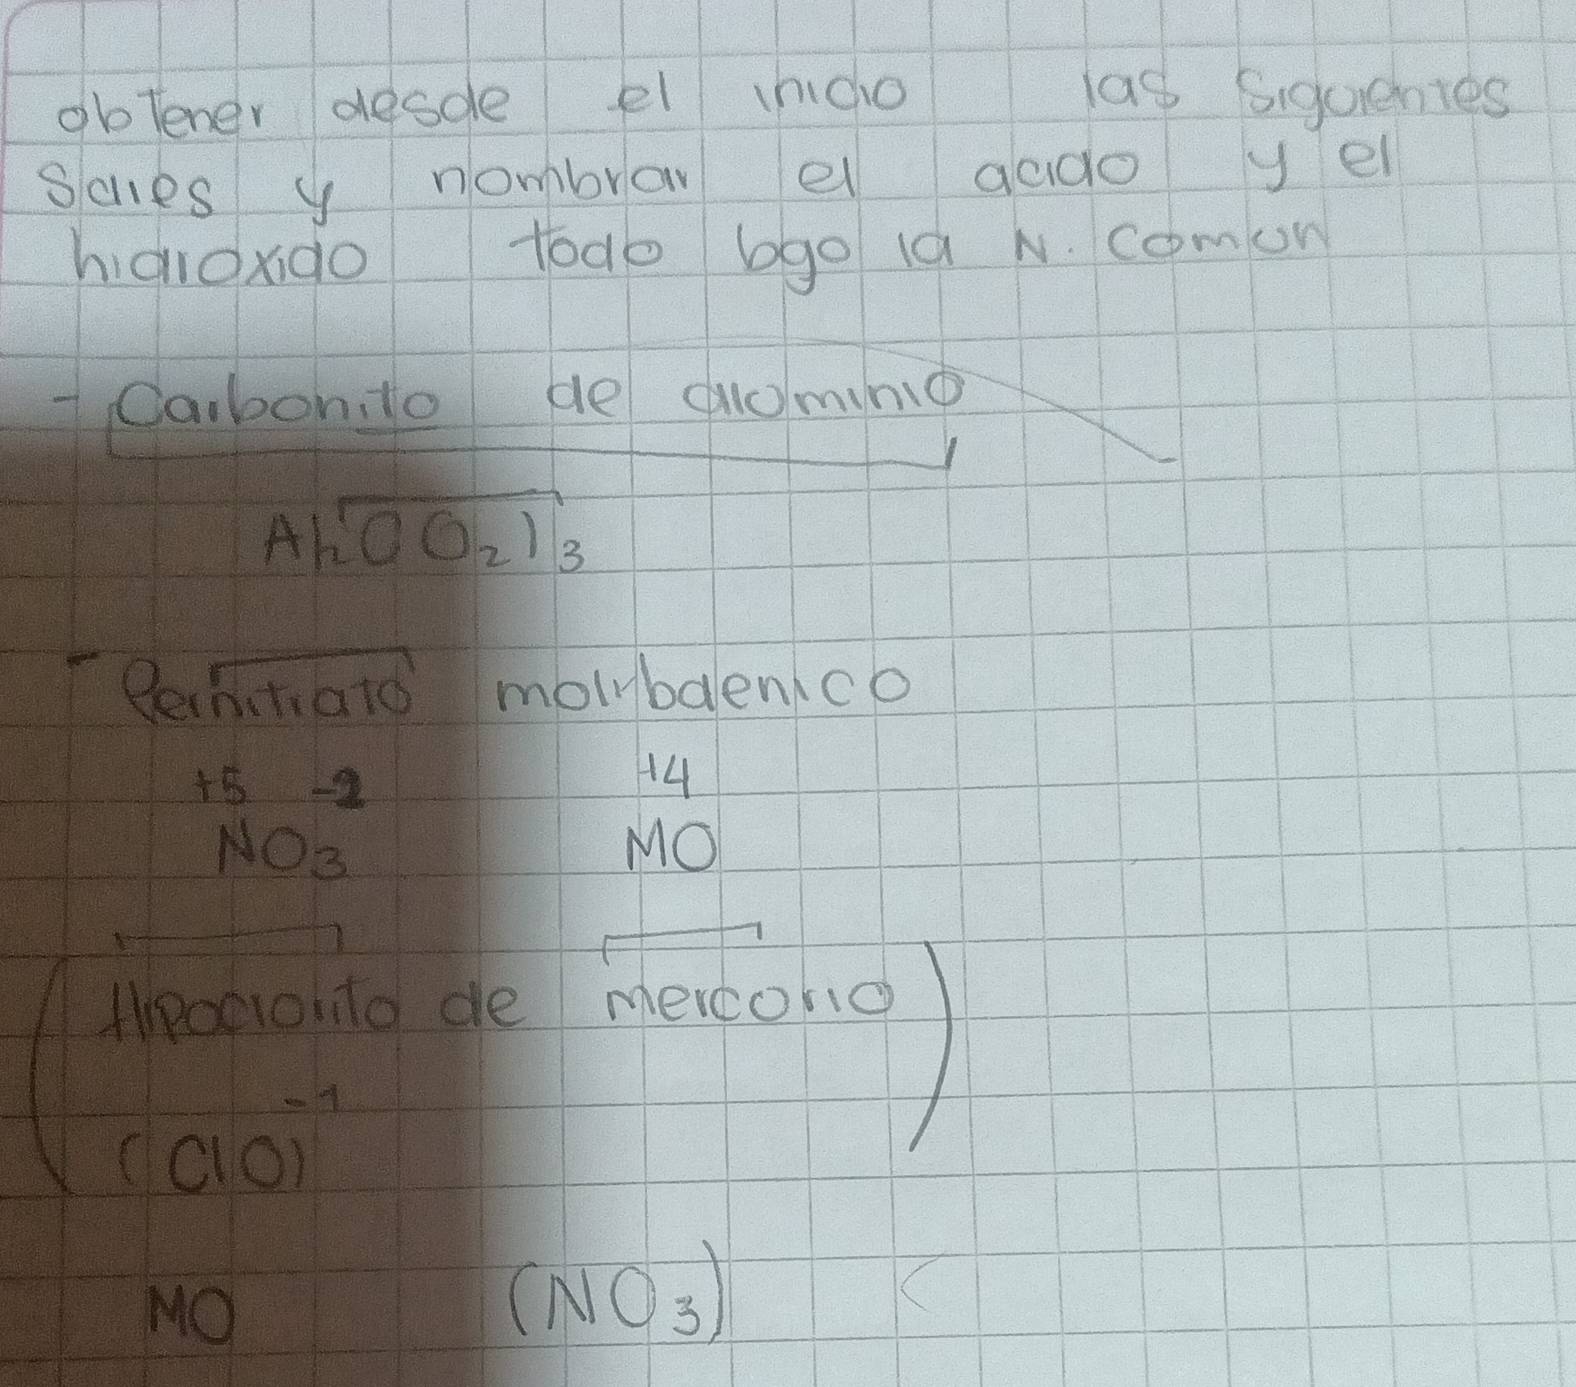 obtener desde el inicio las siguientes
sales y nombrar el acido y el
hidroxido todo bajo la N. comun
- Carbonito de aluminio
Al2(CO2)3
- Pernitrato molybdenico
+5 -2 +4
NO3 MO
Hipoclorito de mercurio
-1
(ClO)
MO (NO3)